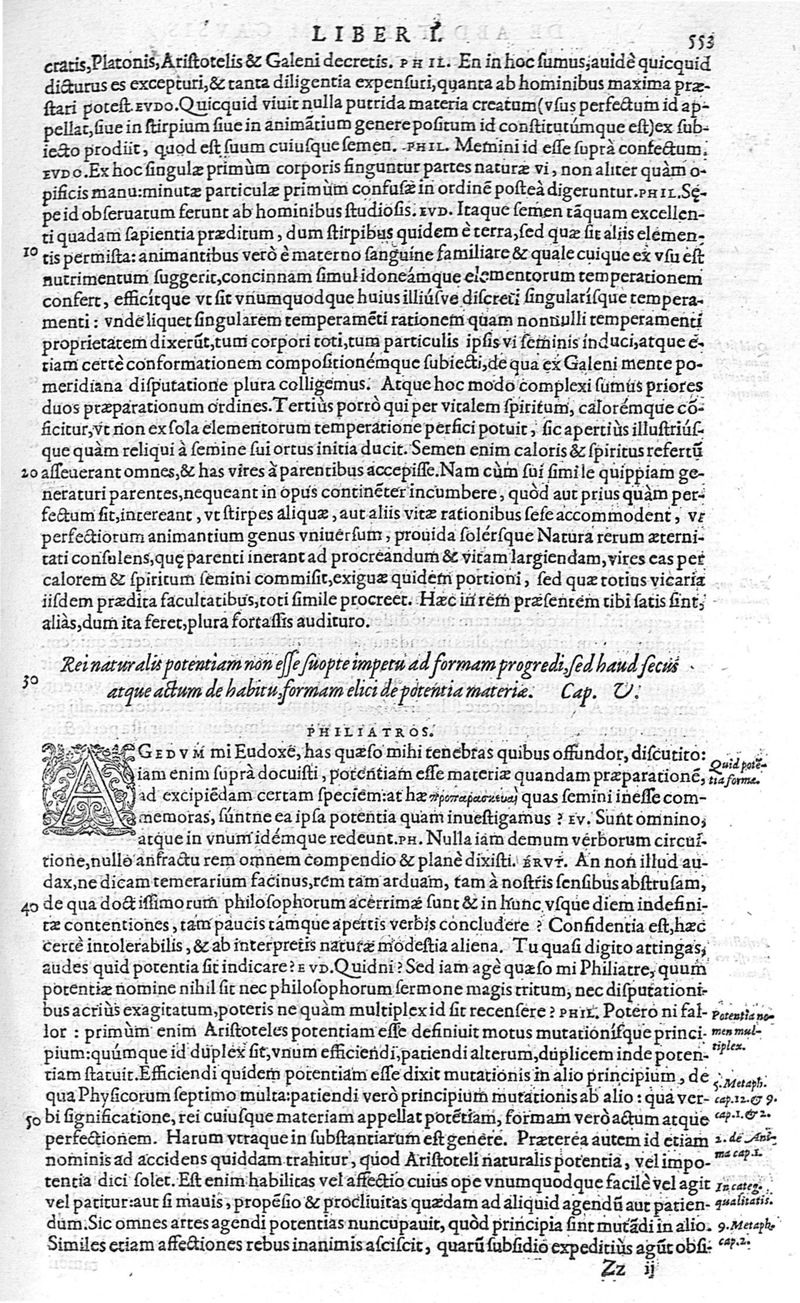 LIBER I. 553
cratis, Platonis, Aristotelis & Galeni decretis. PHIL. En in hoc sumus, auidè quicquid
dicturus es excepturi, & tanta diligentia expensuri, quanta ab hominibus maxima præ-
stari potest. EVDO. Quicquid viuit nulla putrida materia creatum (vsus perfectum id ap-
pellat, siue in stirpium siue in animātium genere positum id constitutúmque est) ex sub-
iecto prodiit, quod est suum cuiusque semen. PHIL. Memini id esse suprà confectum.
EVDO. Ex hoc singulæ primùm corporis finguntur partes naturæ vi, non aliter quàm o-
pificis manu: minutæ particulæ primùm confusæ in ordinē posteà digeruntur. PHIL. Sę-
pe id obseruatum ferunt ab hominibus studiosis. EVD. Itaque semen tāquam excellen-
ti quadam sapientia præditum, dum stirpibus quidem è terra, sed quæ sit aliis elemen-
10 tis permista: animantibus verò è materno sanguine familiare & quale cuique ex vsu est
nutrimentum suggerit, concinnam simul idoneámque elementorum temperationem
confert, efficítque vt sit vnumquodque huius illiúsve discreti singularísque tempera-
menti: vnde liquet singularem temperamēti rationem quam nonnulli temperamenti
proprietatem dixerūt, tum corpori toti, tum particulis ipsis vi seminis induci, atque e-
tiam certè conformationem compositionémque subiecti, de qua ex Galeni mente po-
meridiana disputatione plura colligemus. Atque hoc modo complexi sumus priores
duos præparationum ordines. Tertiùs porrò qui per vitalem spiritum, calorémque cō-
ficitur, vt non ex sola elementorum temperatione perfici potuit, sic apertiùs illustriús-
que quàm reliqui à semine sui ortus initia ducit. Semen enim caloris & spiritus refertū
20 asseuerant omnes, & has vires à parentibus accepisse. Nam cùm sui simile quippiam ge-
neraturi parentes, nequeant in opus continēter incumbere, quòd aut prius quàm per-
fectum sit, intereant, vt stirpes aliquæ, aut aliis vitæ rationibus sese accommodent, vt
perfectiorum animantium genus vniuersum, prouida solérsque Natura rerum æterni-
tati consulens, quę parenti inerant ad procreandum & vitam largiendam, vires eas per
calorem & spiritum semini commisit, exiguæ quidem portioni, sed quæ totius vicaria
iisdem prædita facultatibus, toti simile procreet. Hæc in rem præsentem tibi satis sint,
aliàs, dum ita feret, plura fortassis audituro.
Rei naturalis potentiam non esse suopte impetu ad formam progredi, sed haud secus
30 atque actum de habitu, formam elici de potentia materiæ. Cap. V.
PHILIATROS.
AGEDVM mi Eudoxe, has quæso mihi tenebras quibus offundor, discutito:
Quid potē-
iam enim suprà docuisti, potentiam esse materiæ quandam præparationē,
tia formæ.
ad excipiēdam certam speciem: at hæ προπαρασκευαὶ quas semini inesse com-
memoras, súntne ea ipsa potentia quam inuestigamus? EV. Sunt omnino,
atque in vnum idémque redeunt. PH. Nulla iam demum verborum circui-
tione, nullo anfractu rem omnem compendio & planè dixisti. BRVT. An non illud au-
dax, ne dicam temerarium facinus, rem tam arduam, tam à nostris sensibus abstrusam,
40 de qua doctissimorum philosophorum acerrimæ sunt & in hunc vsque diem indefini-
tæ contentiones, tam paucis támque apertis verbis concludere? Confidentia est, hæc
certè intolerabilis, & ab interpretis naturæ modestia aliena. Tu quasi digito attingas,
audes quid potentia sit indicare? EVD. Quidni? Sed iam agè quæso mi Philiatre, quum
potentiæ nomine nihil sit nec philosophorum sermone magis tritum, nec disputationi-
bus acriùs exagitatum, poteris ne quàm multiplex id sit recensere? PHIL. Potero ni fal-
Potentia no-
lor: primùm enim Aristoteles potentiam esse definiuit motus mutationísque princi-
men mul-
pium: quúmque id duplex sit, vnum efficiendi, patiendi alterum, duplicem inde poten-
tiplex.
tiam statuit. Efficiendi quidem potentiam esse dixit mutationis in alio principium, de
5. Metaph.
qua Physicorum septimo multa: patiendi verò principium mutationis ab alio: qua ver-
cap. 12. & 9.
50 bi significatione, rei cuiusque materiam appellat potētiam, formam verò actum atque
cap. 1. & 2.
perfectionem. Harum vtraque in substantiarum est genere. Præterea autem id etiam
2. de Ani-
nominis ad accidens quiddam trahitur, quod Aristoteli naturalis potentia, vel impo-
ma cap. 1.
tentia dici solet. Est enim habilitas vel affectio cuius ope vnumquodque facilè vel agit
In categ.
vel patitur: aut si mauis, propēsio & procliuitas quædam ad aliquid agendū aut patien-
qualitatis.
dum. Sic omnes artes agendi potentias nuncupauit, quòd principia sint mutādi in alio.
9. Metaph.
Similes etiam affectiones rebus inanimis asciscit, quarū subsidio expeditiùs agūt obsi-
cap. 2.
Zz ij